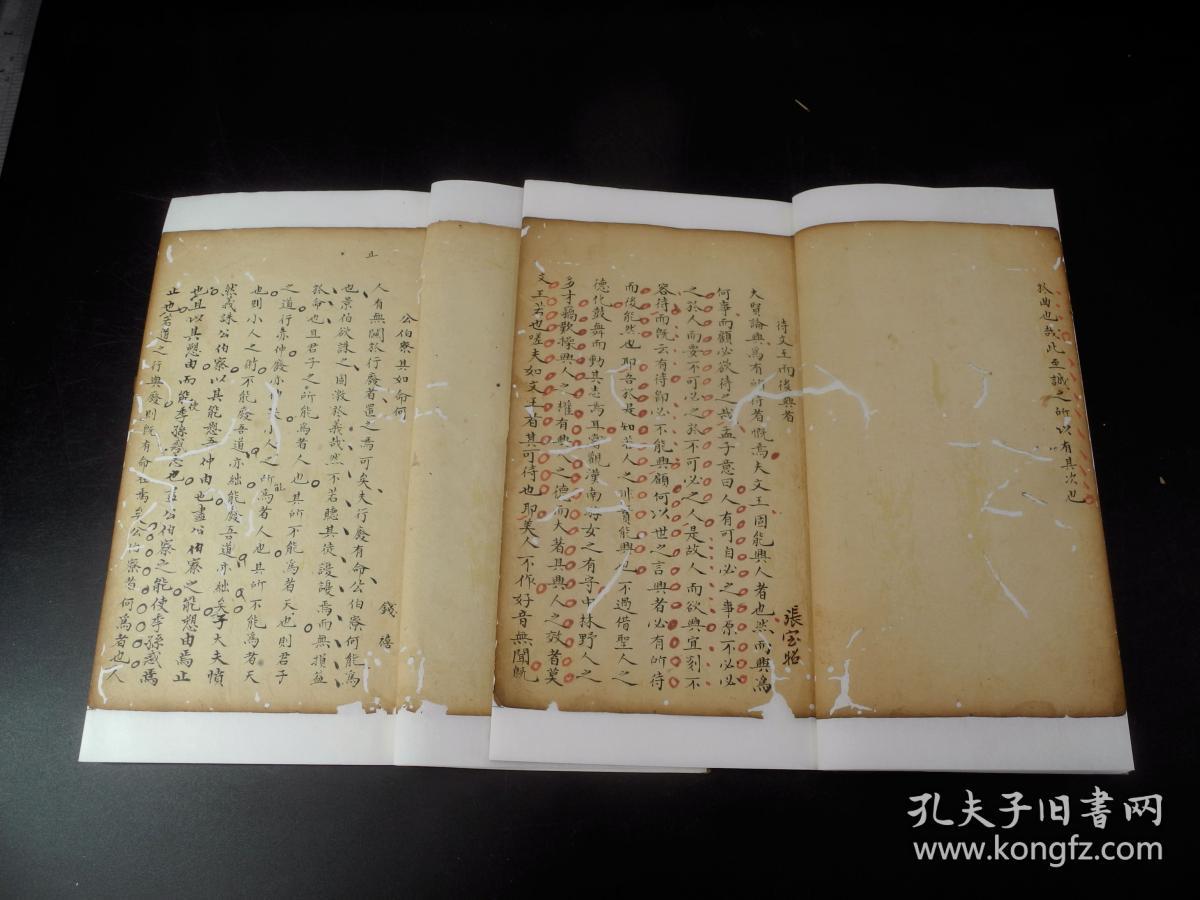 於曲也哉此至誠之所以有其次也
待文王而後興者
張宝昭
大賢論興為有所待者慨焉夫文王固能興人者也然而興為
何事而顧必欲待之哉孟子意曰人有可自必之事原不必必
之於人而要不可必之於不可必之人是故人而欲興宜刻不
容待而既云有待即必不能興顧何以世之言興者必有所待
而後能然也耶吾於是知若人之非真能興也不過借聖人之
德化鼓舞而動其志焉耳嘗觀漢南游女之有守中林野人之
多才竊歎操興人之權有興人之德而大著其興人之效者莫
文王若也嗟夫如文王者其可待也耶美人不作好音無聞既
公伯寮其如命何
錢禧
人有無關於行廢者置之焉可矣夫行廢有命公伯寮何能為
也景伯欲誅之固激於義哉然不若聽其徒謾謾焉而無損益
於命也且君子之所能為者人也其所不能為者天也則君子
之道行亦仲廢亦仲小人之所為者人也其所不能為者天
也則小人之時不能廢吾道亦絀能廢吾道亦絀矣子大夫憤
然義誅公伯寮以其能愬吾仲由也盡公伯寮之能愬由焉止
也且以其愬由而能使季孫惑志也盡公伯寮之能使季孫惑焉
止也若道之行與廢則既有命在焉矣公伯寮者何為者也人
止
能
孔夫子旧书网
www.kongfz.com